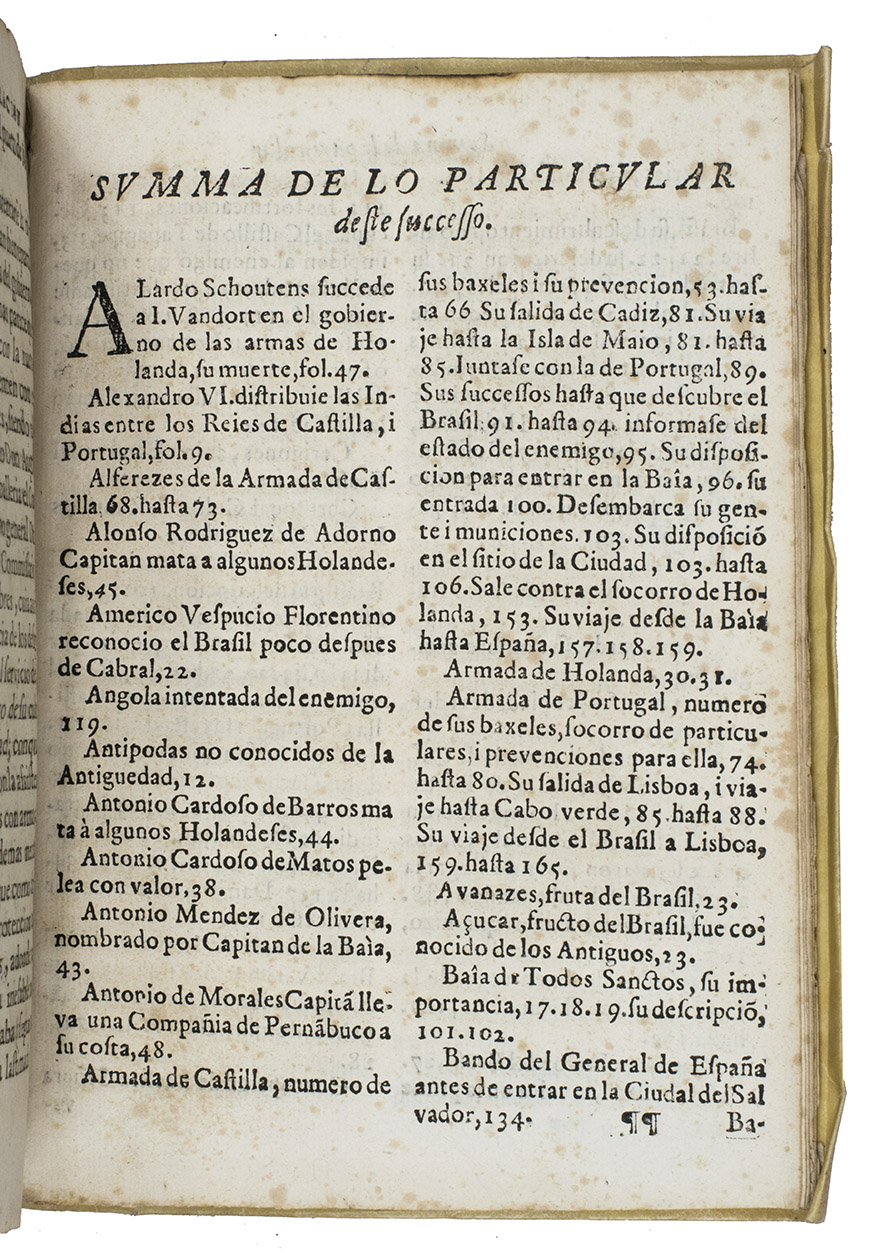 SVMMA DE LO PARTICVLAR
deste sucesso.
ALardo Schoutens succede
a I. Vandort en el gobier-
no de las armas de Ho-
landa, su muerte, fol. 47.
Alexandro VI. distribuie las In-
dias entre los Reies de Castilla, i
Portugal, fol. 9.
Alferezes de la Armada de Cas-
tilla, 68. hasta 73.
Alonso Rodriguez de Adorno
Capitan mata a algunos Holande-
ses, 45.
Americo Vespucio Florentino
reconocio el Brasil poco despues
de Cabral, 22.
Angola intentada del enemigo,
119.
Antipodas no conocidos de la
Antiguedad, 12.
Antonio Cardoso de Barros ma
ta à algunos Holandeses, 44.
Antonio Cardoso de Matos pe-
lea con valor, 38.
Antonio Mendez de Olivera,
nombrado por Capitan de la Baìa,
43.
Antonio de Morales Capitã lle-
va una Compañia de Pernãbuco a
su costa, 48.
Armada de Castilla, numero de
sus baxeles i su prevencion, 53. has-
ta 66 Su salida de Cadiz, 81. Su via
je hasta la Isla de Maio, 81. hasta
85. Juntase con la de Portugal, 89.
Sus successos hasta que descubre el
Brasil, 91. hasta 94. informase del
estado del enemigo, 95. Su disposi-
cion para entrar en la Baîa, 96. su
entrada 100. Desembarca su gen-
te i municiones. 103. Su disposiciõ
en el sitio de la Ciudad, 103. hasta
106. Sale contra el socorro de Ho-
landa, 153. Su viaje desde la Baìa
hasta España, 157. 158. 159.
Armada de Holanda, 30. 31.
Armada de Portugal, numero
de sus baxeles, socorro de particu-
lares, i prevenciones para ella, 74.
hasta 80. Su salida de Lisboa, i via-
je hasta Cabo verde, 85. hasta 88.
Su viaje desde el Brasil a Lisboa,
159. hasta 165.
Avanazes, fruta del Brasil, 23.
Açucar, fructo del Brasil, fue co-
nocido de los Antiguos, 23.
Baîa de Todos Sanctos, su im-
portancia, 17. 18. 19. su descripciõ,
101. 102.
Bando del General de España
antes de entrar en la Ciudal del Sal
vador, 134.
¶¶ Ba-